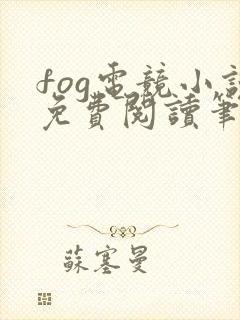 fog電競小説
免費閱讀筆
蘇塞曼